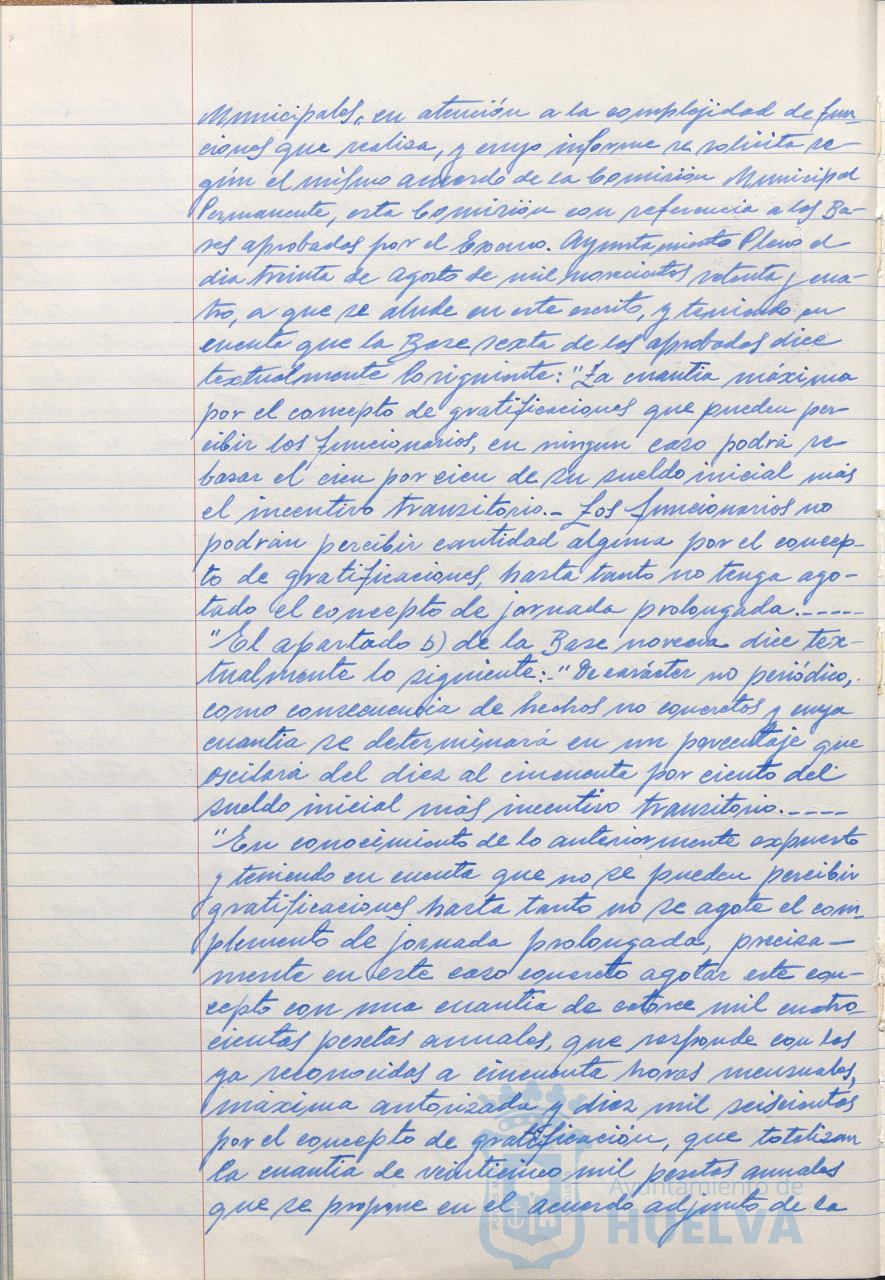 Municipales, en atención a la complejidad de fun-
ciones que realiza, y cuyo informe se solicita se-
gún el mismo acuerdo de la Comisión Municipal
Permanente, esta Comisión con referencia a las Ba-
ses aprobadas por el Excmo. Ayuntamiento Pleno el
dia treinta de Agosto de mil novecientos setenta y cua-
tro, a que se alude en este escrito, y teniendo en
cuenta que la Base sexta de las aprobadas dice
textualmente lo siguiente: "La cuantia máxima
por el concepto de gratificaciones que pueden per-
cibir los funcionarios, en ningun caso podrá re-
basar el cien por cien de su sueldo inicial más
el incentivo transitorio.- Los funcionarios no
podrán percibir cantidad alguna por el concep-
to de gratificaciones, hasta tanto no tenga ago-
tado el concepto de jornada prolongada.-----
"El apartado b) de la Base novena dice tex-
tualmente lo siguiente:-"De carácter no periódico,
como consecuencia de hechos no concretos y cuya
cuantia se determinará en un porcentaje que
oscilará del diez al cincuenta por ciento del
sueldo inicial más incentivo transitorio.----
"En conocimiento de lo anteriormente expuesto
y teniendo en cuenta que no se pueden percibir
gratificaciones hasta tanto no se agote el com-
plemento de jornada prolongada, precisa-
mente en este caso concreto agotar este con-
cepto con una cuantia de catorce mil cuatro-
cientas pesetas anuales, que responde con las
ya reconocidas a cincuenta horas mensuales,
máxima autorizada y diez mil seiscientas
por el concepto de gratificación, que totalizan
la cuantia de veinticinco mil pesetas anuales
que se propone en el acuerdo adjunto de la
Ayuntamiento de
HUELVA